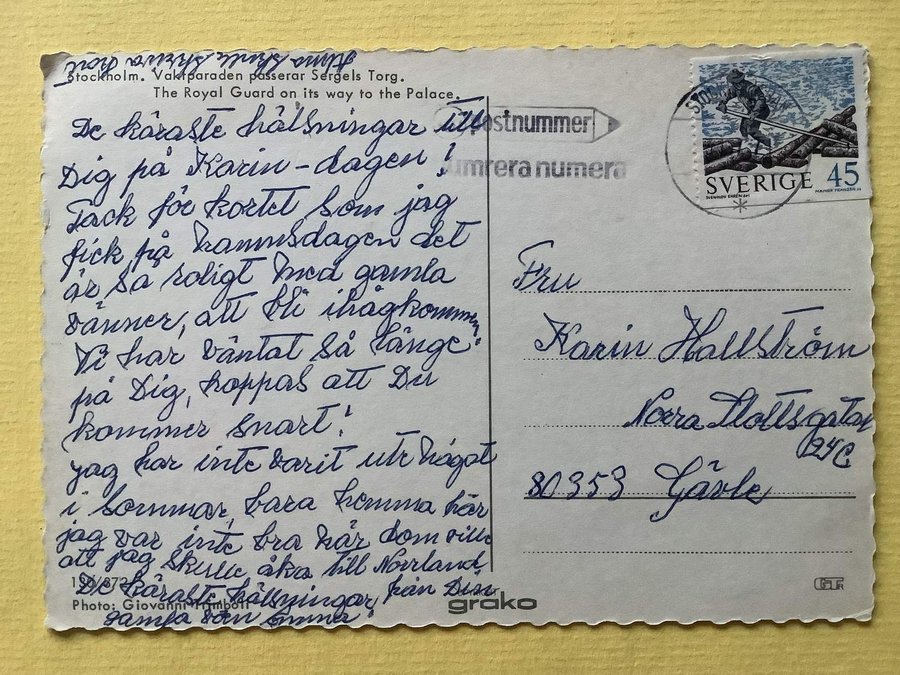 Stockholm. Vaktparaden passerar Sergels Torg.
The Royal Guard on its way to the Palace.
De käraste hälsningar till
Dig på Karin-dagen!
Tack för kortet som jag
fick på namnsdagen det
är så roligt med gamla
vänner, att bli ihågkommen.
Vi har väntat så länge
på Dig, hoppas att Du
kommer snart!
jag har inte varit ute något
i sommar, bara hemma här
jag var inte bra när dom ville
att jag skulle åka till Norrland
De käraste hälsningar från Din
gamla vän
Photo: Giovanni Trimboli
grako
postnummer
umrera numera
SVERIGE 45
Fru
Karin Hallström
Norra Slottsgatan
80353 Gävle